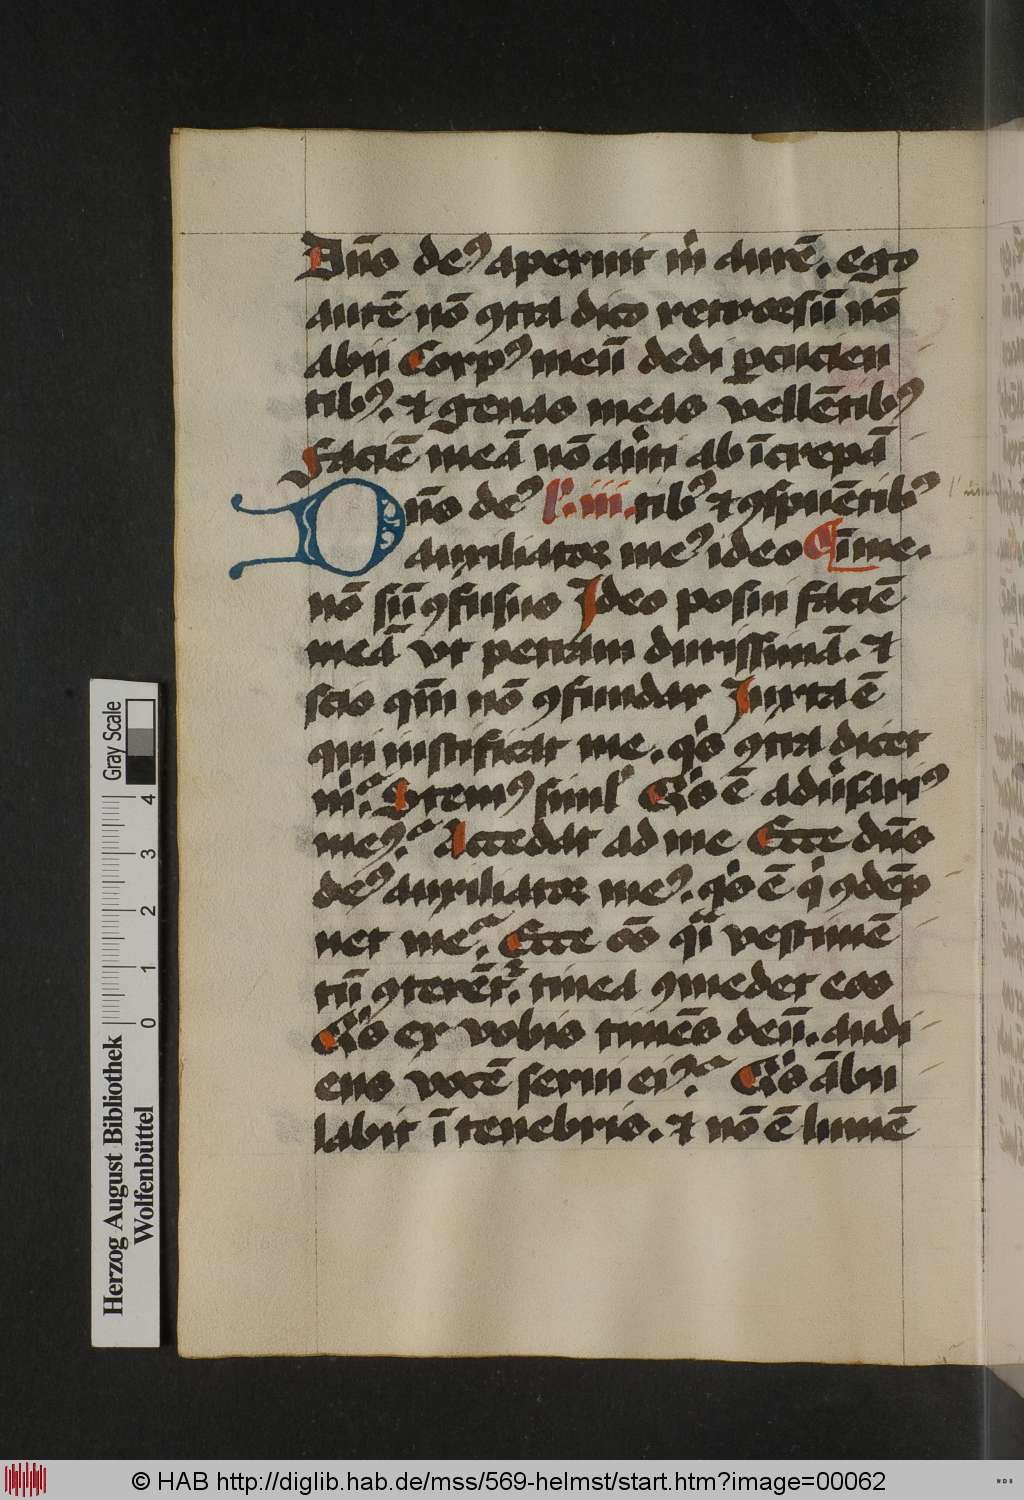 Dn̄s deꝰ aperuit m̄ aurē. ego
autē nō ꝯtra dico retrorsū nō
abii Corpꝰ meū dedi ꝑcucien
tibꝰ. et genas meas vellētibꝰ
faciē meā nō au̇ti ab īcrepā
Dn̄s deꝰ l'. iii. tibꝰ et ꝯspuētibꝰ
auxiliator meꝰ ideo C īme.
nō sū ꝯfusus Ideo posui faciē
meā vt petram durissimā. et
scio qm̄ nō ꝯfundar Iuxta ē
qui iustificat me. qͥs ꝯtra dicet
m̄? Stemꝰ simul Qͥs ē adu̇sariꝰ
meꝰ? Accedat ad me Ecce dn̄s
deꝰ auxiliator meꝰ. qͥs ē qͥ ꝯdēp
net me? Ecce oēs qͣi vestimē
tū ꝯterētᷣ. tinea ꝯmedet eos
Qͥs ex vobis timēs deū. audi
ens vocē serui eiꝰ? Qͥs ābu
labit ī tenebris. et nō ē lumē
Gray Scale
4
3
2
1
0
Herzog August Bibliothek
Wolfenbüttel
© HAB http://diglib.hab.de/mss/569-helmst/start.htm?image=00062